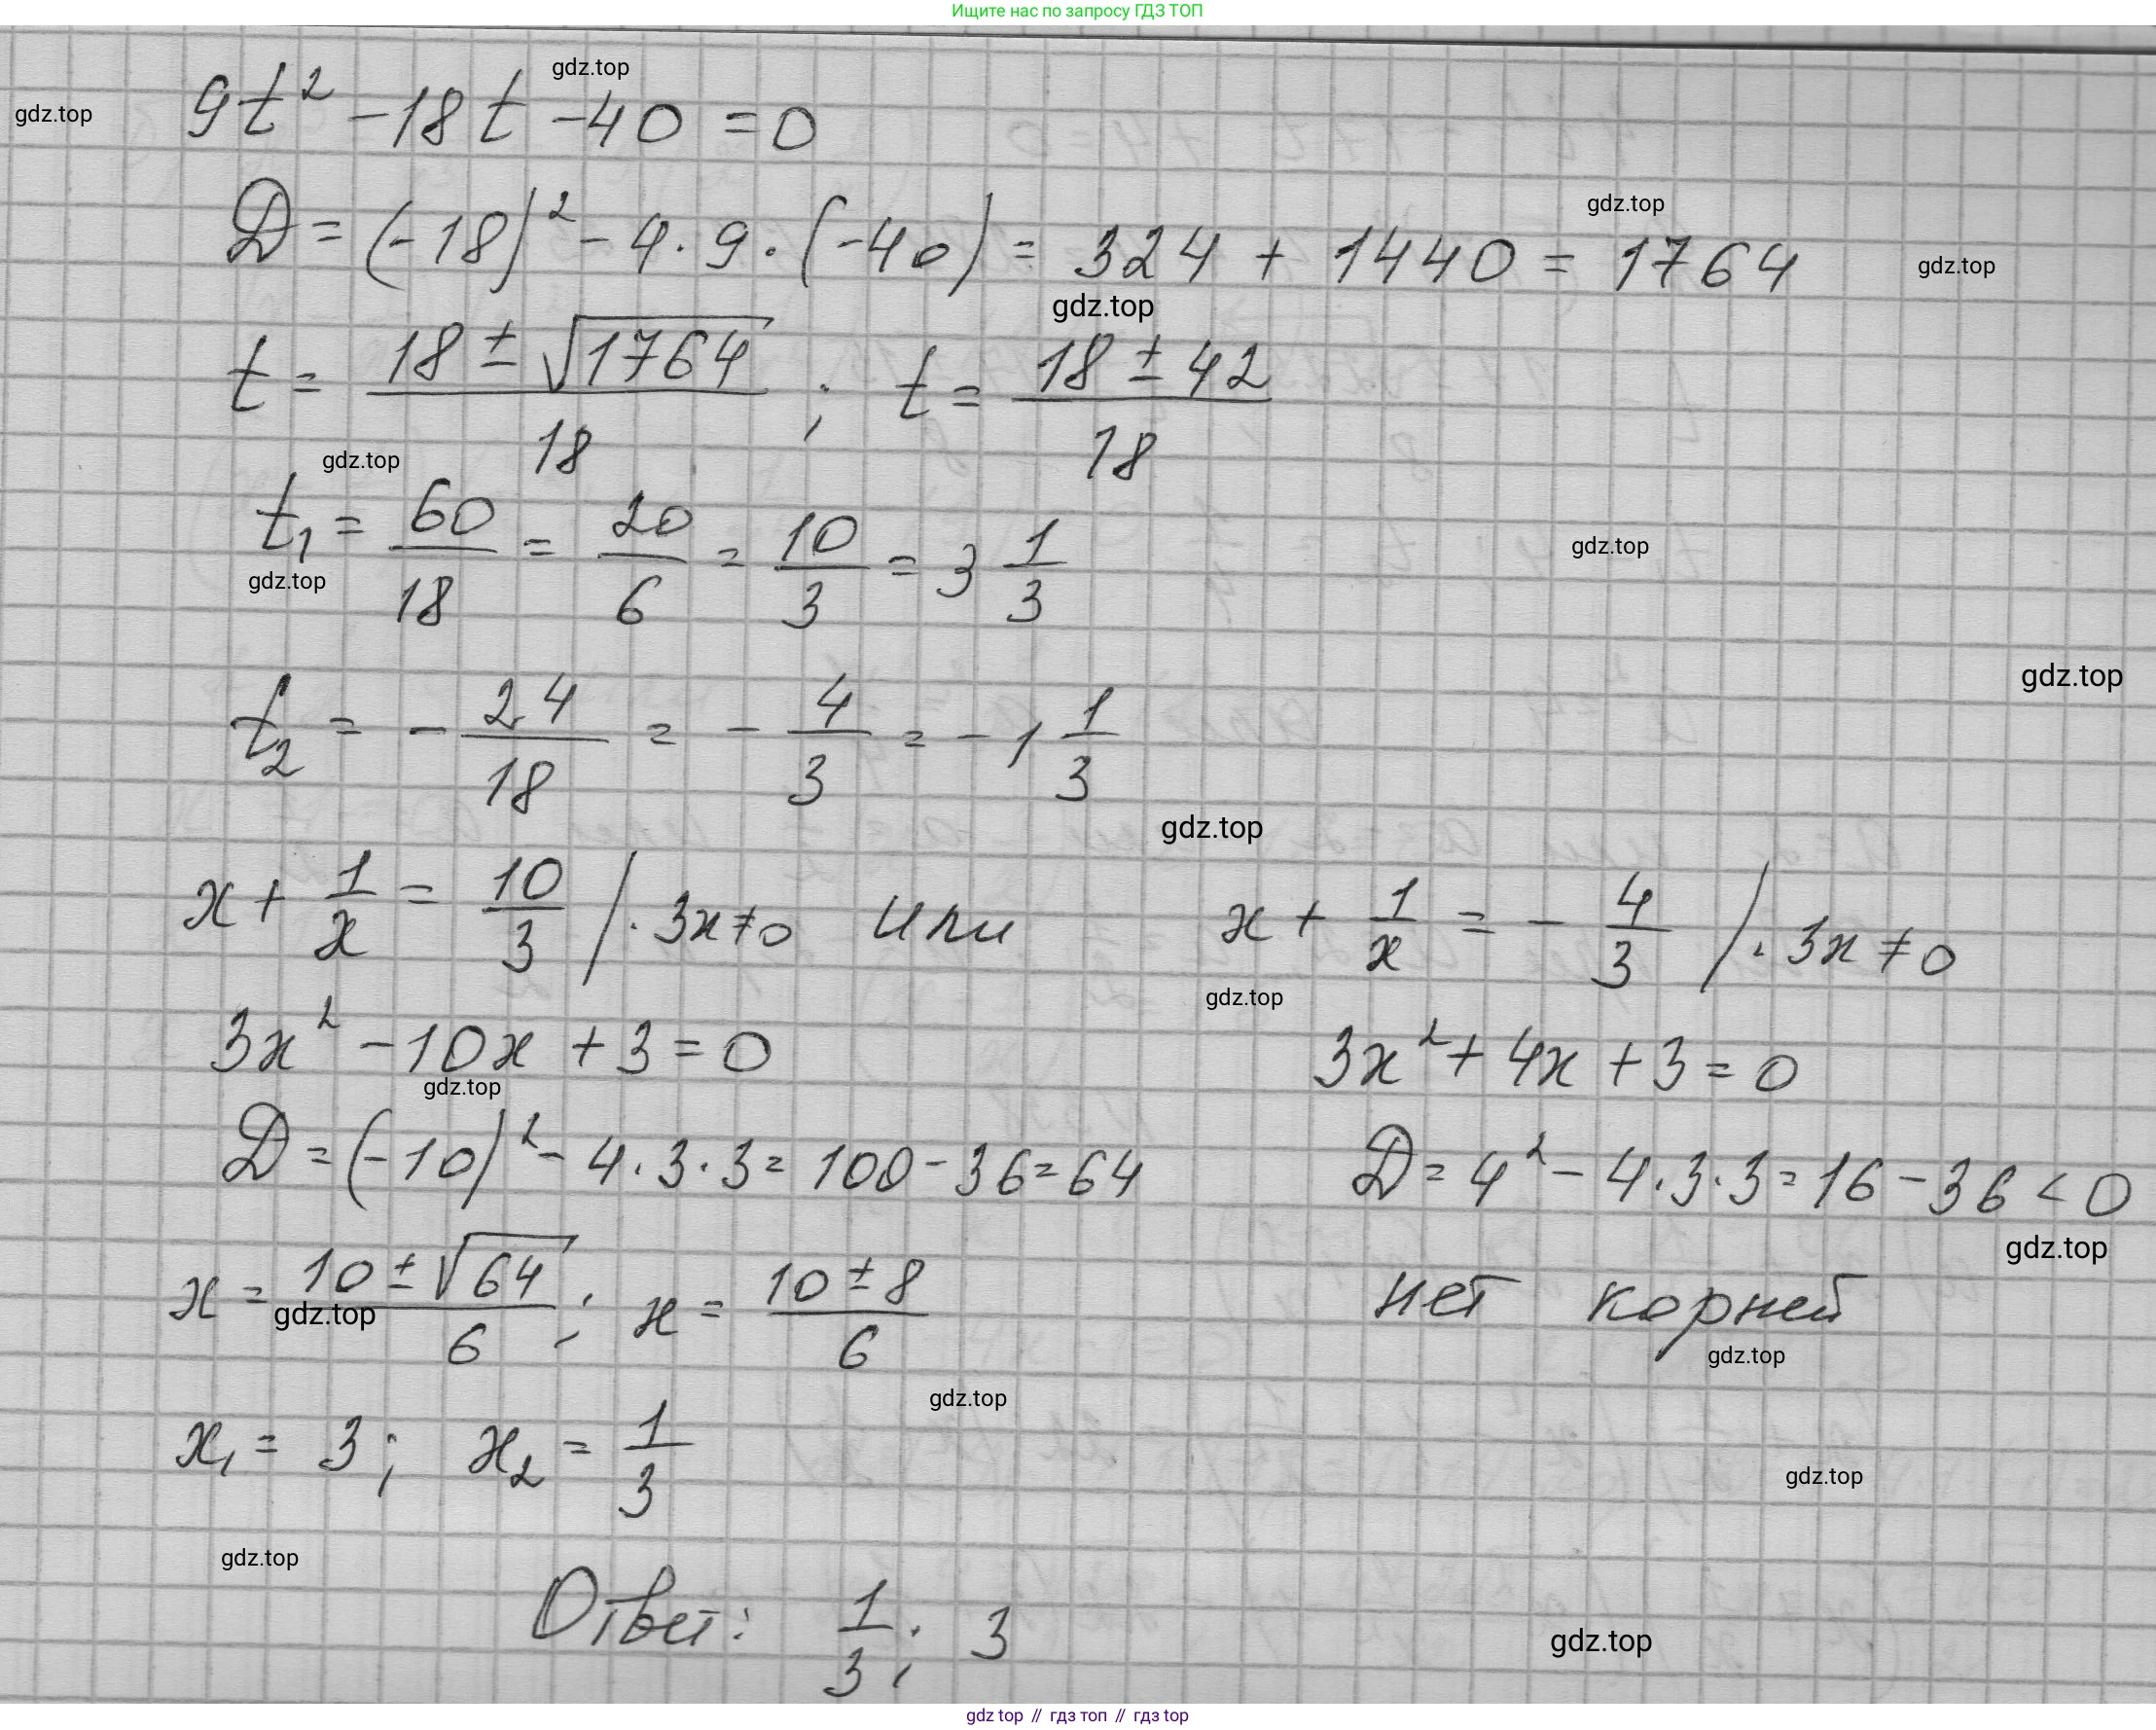 Ищите нас по запросу ГДЗ ТОП
gdz.top
gdz.top
9t² - 18t - 40 = 0
D = (-18)² - 4 · 9 · (-40) = 324 + 1440 = 1764
gdz.top
gdz.top
gdz.top
t = \frac{18 ± √1764}{18} ; t = \frac{18 ± 42}{18}
gdz.top
t₁ = \frac{60}{18} = \frac{20}{6} = \frac{10}{3} = 3 \frac{1}{3}
gdz.top
gdz.top
gdz.top
t₂ = - \frac{24}{18} = - \frac{4}{3} = - 1 \frac{1}{3}
gdz.top
x + \frac{1}{x} = \frac{10}{3} / · 3x ≠ 0 или x + \frac{1}{x} = - \frac{4}{3} / · 3x ≠ 0
gdz.top
3x² - 10x + 3 = 0 3x² + 4x + 3 = 0
gdz.top
D = (-10)² - 4 · 3 · 3 = 100 - 36 = 64 D = 4² - 4 · 3 · 3 = 16 - 36 < 0
gdz.top
x = \frac{10 ± √64}{6} ; x = \frac{10 ± 8}{6} нет корней
gdz.top
gdz.top
gdz.top
x₁ = 3 ; x₂ = \frac{1}{3}
gdz.top
gdz.top
Ответ: \frac{1}{3} ; 3
gdz.top
gdz top // гдз топ // гдз top